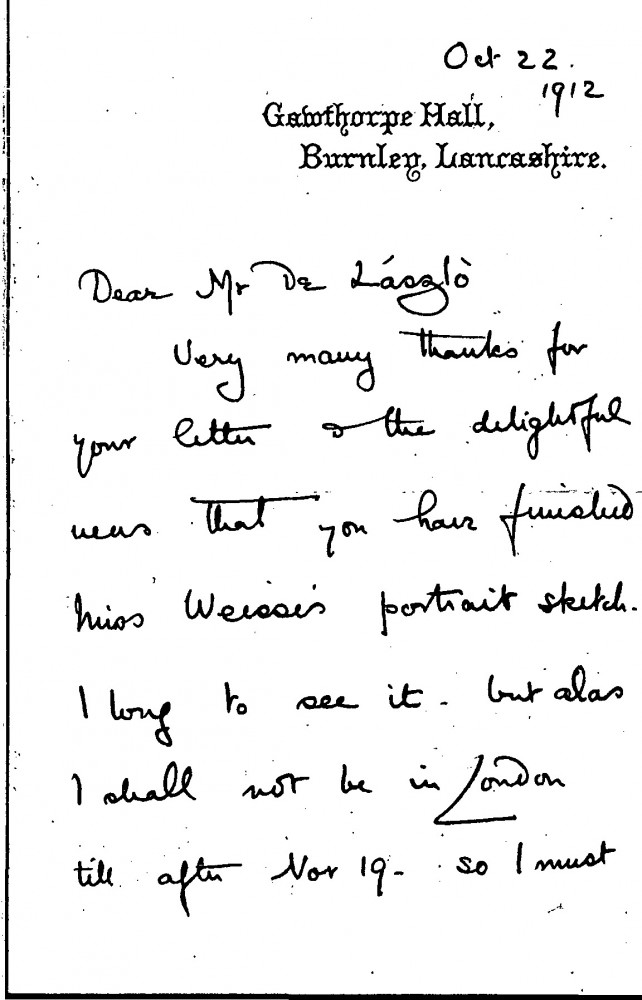 Oct 22.
1912
Gawthorpe Hall,
Burnley, Lancashire.
Dear Mr De Lászlò
Very many thanks for
your letter & the delightful
news that you have finished
Miss Weisse's portrait sketch.
I long to see it - but alas
I shall not be in London
till after Nov 19 - so I must